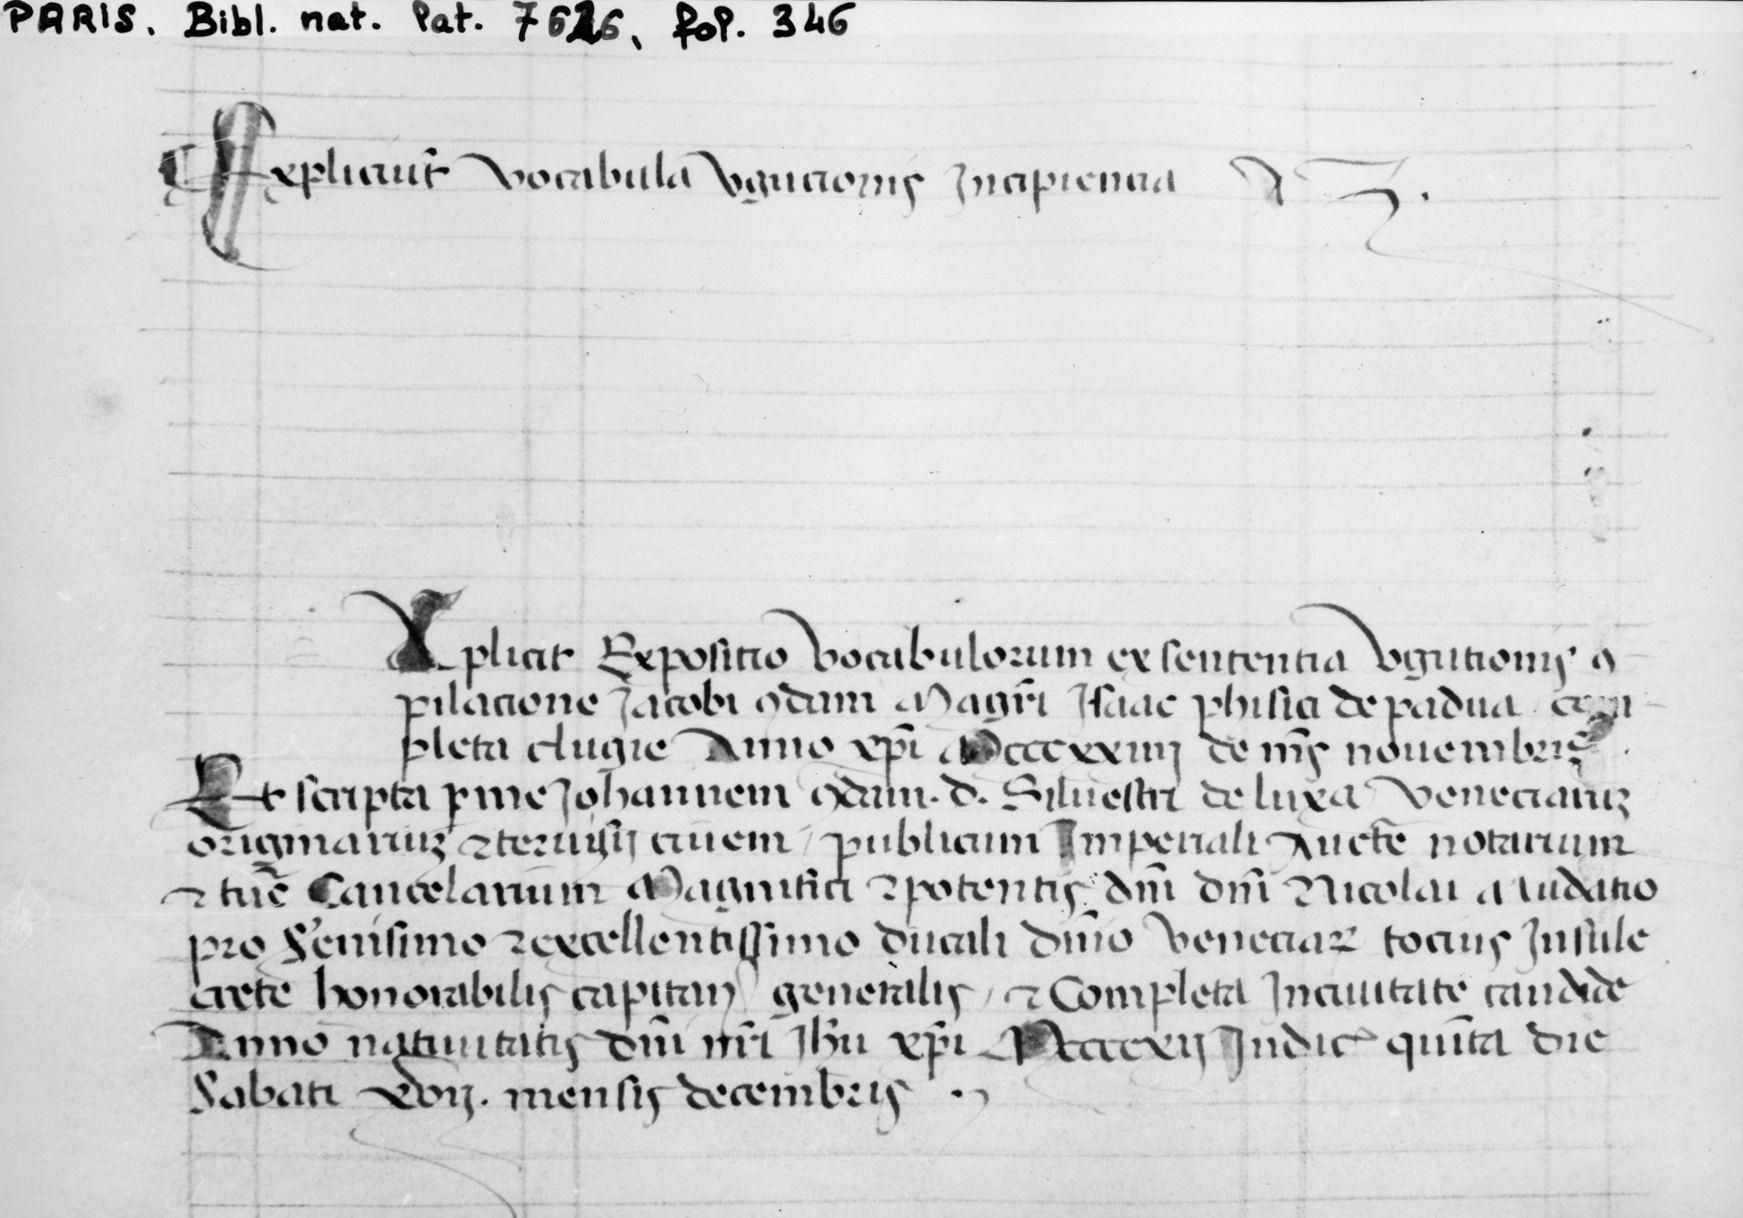 PARIS. Bibl. nat. lat. 7626, fol. 346
Expliciūt vocabula vgucionis Incipiencia A Z.
Explicit Expositio vocabulorum ex sententia vgutionis ꝯ
pilacione Jacobi ꝯdam Magr̄i Isaac phisici de padua com
pleta clugie Anno xp̄i Mcccxxiiij de ms̄ nouembris.
Et scripta ꝑ me Johannem ꝯdam. d. Siluestri de luxa veneciaruꝫ
originariuꝫ ⁊ teruisij ciuem / publicum Imperiali Aucte͞ notarium
⁊ tūc Cancelarium Magnifici ⁊ potentis dn̄i dn̄i Nicolai
pro Se͛nisimo ⁊ excellentissimo ducali dn̄io veneciaꝝ tocius Insule
crete honorabilis capitanei generalis / ⁊ Completa In ciuitate candide
Anno natiuitatis dn̄i nr̄i Jhū xp̄i Mccccxij Indic͛ quīta die
Sabati xvij. mensis decembris